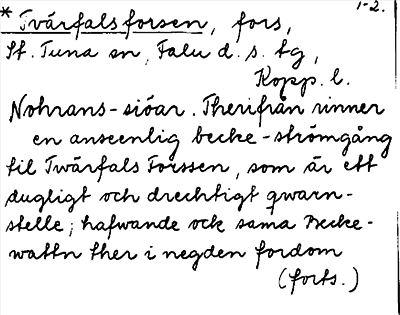 1-2.
* Tvärfalsforsen, fors,
St. Tuna sn, Falu d. s. tg,
Kopp. l.
Nohrans-siöar. Therifrån rinner
en anseenlig becke-strömgång
til Twärfals Forssen, som är ett
dugligt och drechtigt qwarn-
stelle; hafwande ock sama Becke-
wattn ther i negden fordom
(forts.)